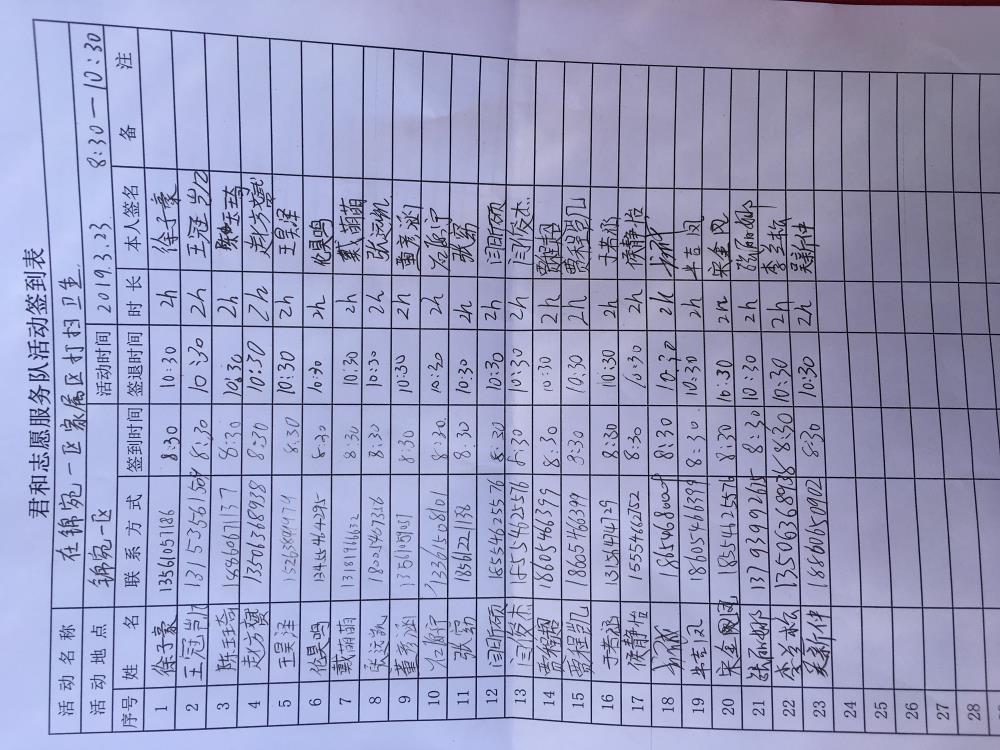 君和志愿服务队活动签到表
活动名称 在锦宛一区家属区打扫卫生
活动地点 锦宛一区 活动时间 2019.3.23 8:30—10:30
序号 姓名 联系方式 签到时间 签退时间 时长 本人签名 备注
1 徐子豪 13561057186 8:30 10:30 2h 徐子豪
2 王冠岂 8:30 10:30 2h 王冠岂
3 陈玉琦 8:30 10:30 2h
4 赵方赟 13501368938 8:30 10:30 2h 赵方赟
5 王昊泽 8:30 10:30 2h 王昊泽
6 伦昊鸣 8:30 10:30 2h 伦昊鸣
7 戴萌萌 13181916632 8:30 10:30 2h 戴萌萌
8 张远航 18005467316 8:30 10:30 2h 张远航
9 董彦涵 8:30 10:30 2h 董彦涵
10 13361508101 8:30 10:30 2h
11 张窈 18561221138 8:30 10:30 2h 张窈
12 闫昕硕 18554625576 8:30 10:30 2h 闫昕硕
13 闫俊杰 18554625576 8:30 10:30 2h 闫俊杰
14 贾程超 18605466399 8:30 10:30 2h 贾程超
15 贾程凯 18605466399 8:30 10:30 2h 贾程凯
16 于若涵 13156414729 8:30 10:30 2h 于若涵
17 侯静怡 8:30 10:30 2h 侯静怡
18 8:30 10:30 2h
19 牛吉凤 18605466399 8:30 10:30 2h 牛吉凤
20 宋金凤 18554625576 8:30 10:30 2h 宋金凤
21 张丽娜 13793999615 8:30 10:30 2h 张丽娜
22 李兰松 13506368938 8:30 10:30 2h 李兰松
23 吴新仲 18860650902 8:30 10:30 2h 吴新仲
24
25
26
27
28